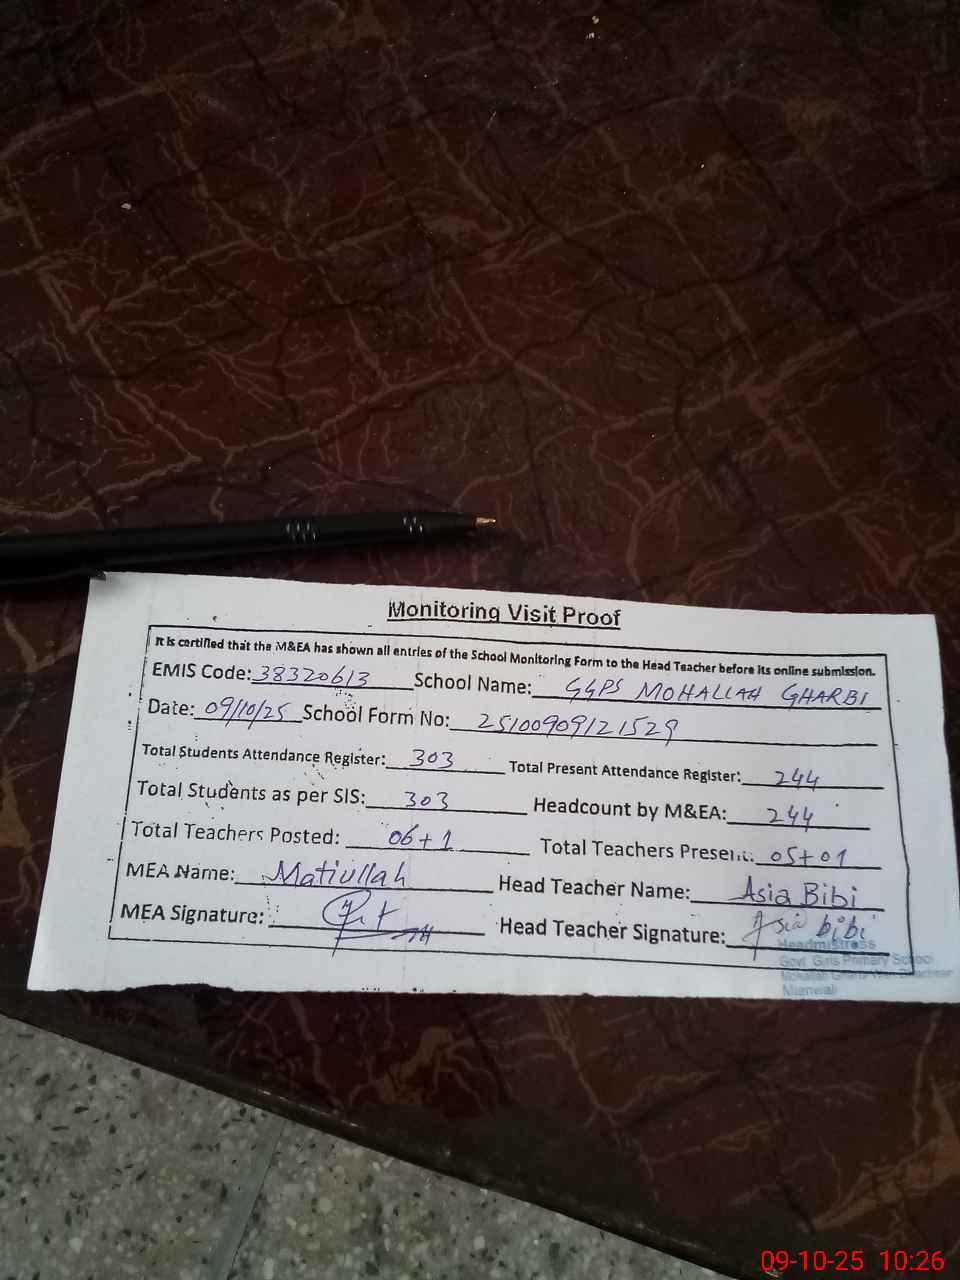 Monitoring Visit Proof
It is certified that the M&EA has shown all entries of the School Monitoring Form to the Head Teacher before its online submission.
EMIS Code: 38320613 School Name: GGPS MOHALLAH GHARBI
Date: 09/10/25 School Form No: 25100909121529
Total Students Attendance Register: 303 Total Present Attendance Register: 244
Total Students as per SIS: 303 Headcount by M&EA: 244
Total Teachers Posted: 06+1 Total Teachers Present: 05+01
MEA Name: Matiullah Head Teacher Name: Asia Bibi
MEA Signature: Head Teacher Signature: Asia bibi
Headmistress
Govt. Girls Primary School
Mohallah Gharbi
Mianwali
09-10-25 10:26